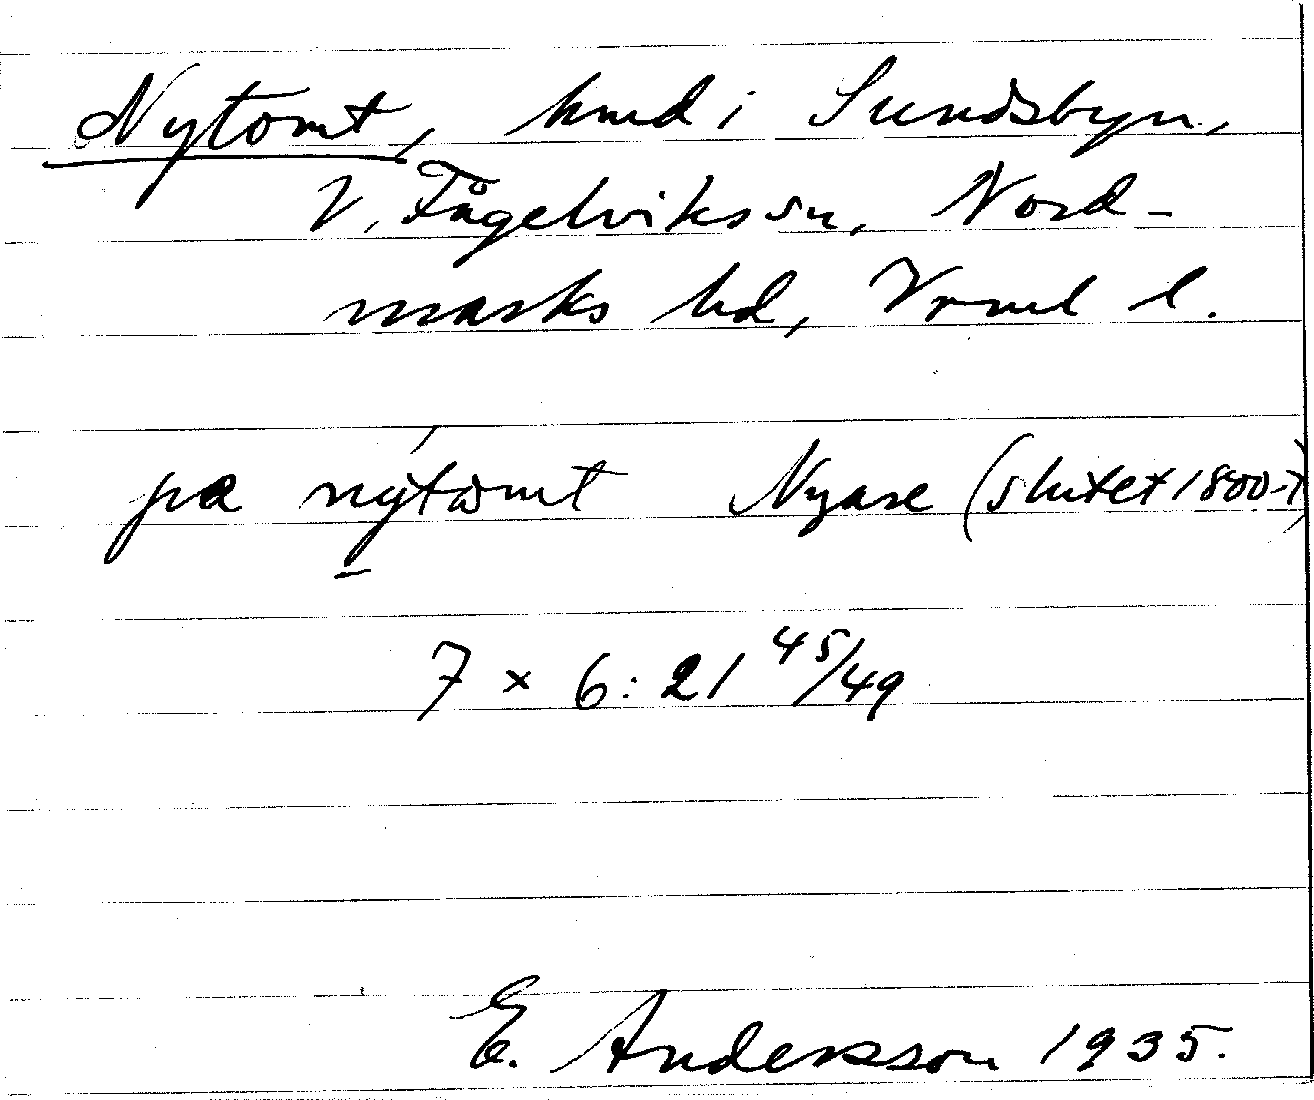 Nytomt, hmd i Sundsbyn,
V. Fågelviks sn, Nord-
marks hd, Vrml l.
pa nýtomt Nyare (slutet 1800-t)
7 × 6:21 45/49
E. Andersson 1935.